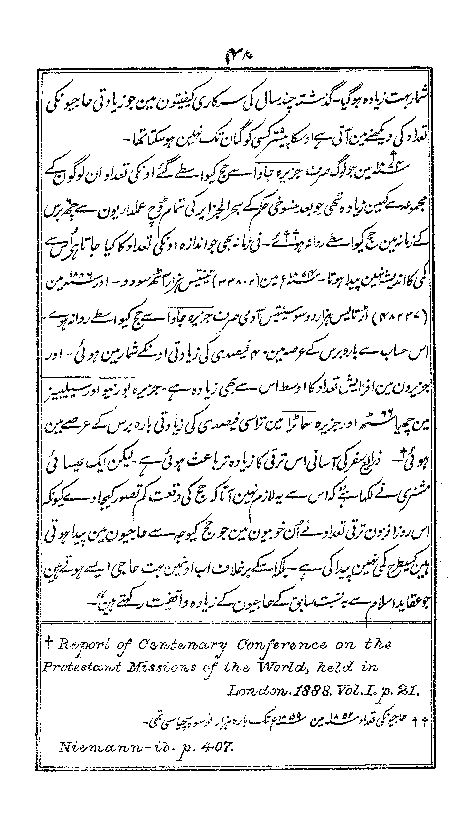 شمار بہت زیادہ ہو گیا۔ گذشتہ چند سال کی سرکاری کیفیتون مین جو زیادتی حاجیونکی
تعداد کی دیکھنے مین آئی ہے اوسکا پیشتر کسی کو گمان تک نہین ہو سکتا تھا۔
۱۸۷۴ مین جو لوگ صرف جزیرہ جاوا سے حج کیواسطے گئے اونکی تعداد ان لوگونکے
مجموعہ سے کہین زیادہ تھی جو بعد منسوخی کے بحر الجزایر کی تمام ڈچ عملداریون سے چھ برس
کے زمانہ مین حج کیواسطے روانہ ہوئے††۔ فی زمانہ بھی جو اندازہ اونکی تعداد کا کیا جاتا ہے اوس سے
کمی کا اندیشہ نہین پیدا ہوتا۔ ۱۸۷۴ع مین (۳۳۸۰۲) تینتیس ہزار آٹھ سو دو۔ اور ۱۸۸۶ مین
(۴۸۲۳۷) اڑتالیس ہزار دو سو سینتیس آدمی صرف جزیرہ جاوا سے حج کیواسطے روانہ ہوے۔
اس حساب سے بارہ برس کے عرصہ مین ۴۰ فیصدی کی زیادتی اونکے شمار مین ہوئی۔ اور
جزیرون مین افزایش تعداد کا اوسط اس سے بھی زیادہ ہے۔ جزیرہ بورنیو اور سیلیبیز
مین چھیاسٹھ ۶۶ اور جزیرہ سماٹرا مین تراسی فیصدی کی زیادتی بارہ برس کے عرصے مین
ہوئی†۔ ذرایع سفر کی آسانی اس ترقی کا زیادہ تر باعث ہوئی ہے۔ لیکن ایک عیسائی
مشنری نے لکھا ہے کہ اس سے یہ لازم نہین آتا کہ حج کی وقعت کم تصور کیجاوے کیونکہ
اس روز افزون ترقی تعداد نے اُن خوبیون مین جو حج کیوجہ سے حاجیون مین پیدا ہوتی
ہین کسیطرح کمی نہین پیدا کی ہے۔ بلکہ اسکے برخلاف اب اونمین بہت حاجی ایسے ہوتے ہین
جو عقاید اسلام سے بہ نسبت سابق کے حاجیون کے زیادہ واقفیت رکھتے ہین
† Report of Centenary Conference on the
Protestant Missions of the World, held in
London. 1888. Vol. I. p. 21.
†† حاجیونکی تعداد ۱۸۵۴ مین ۱۸۵۹ع تک بارہ ہزار نو سو پچاسی تھی۔
Niemann—ib. p. 407.